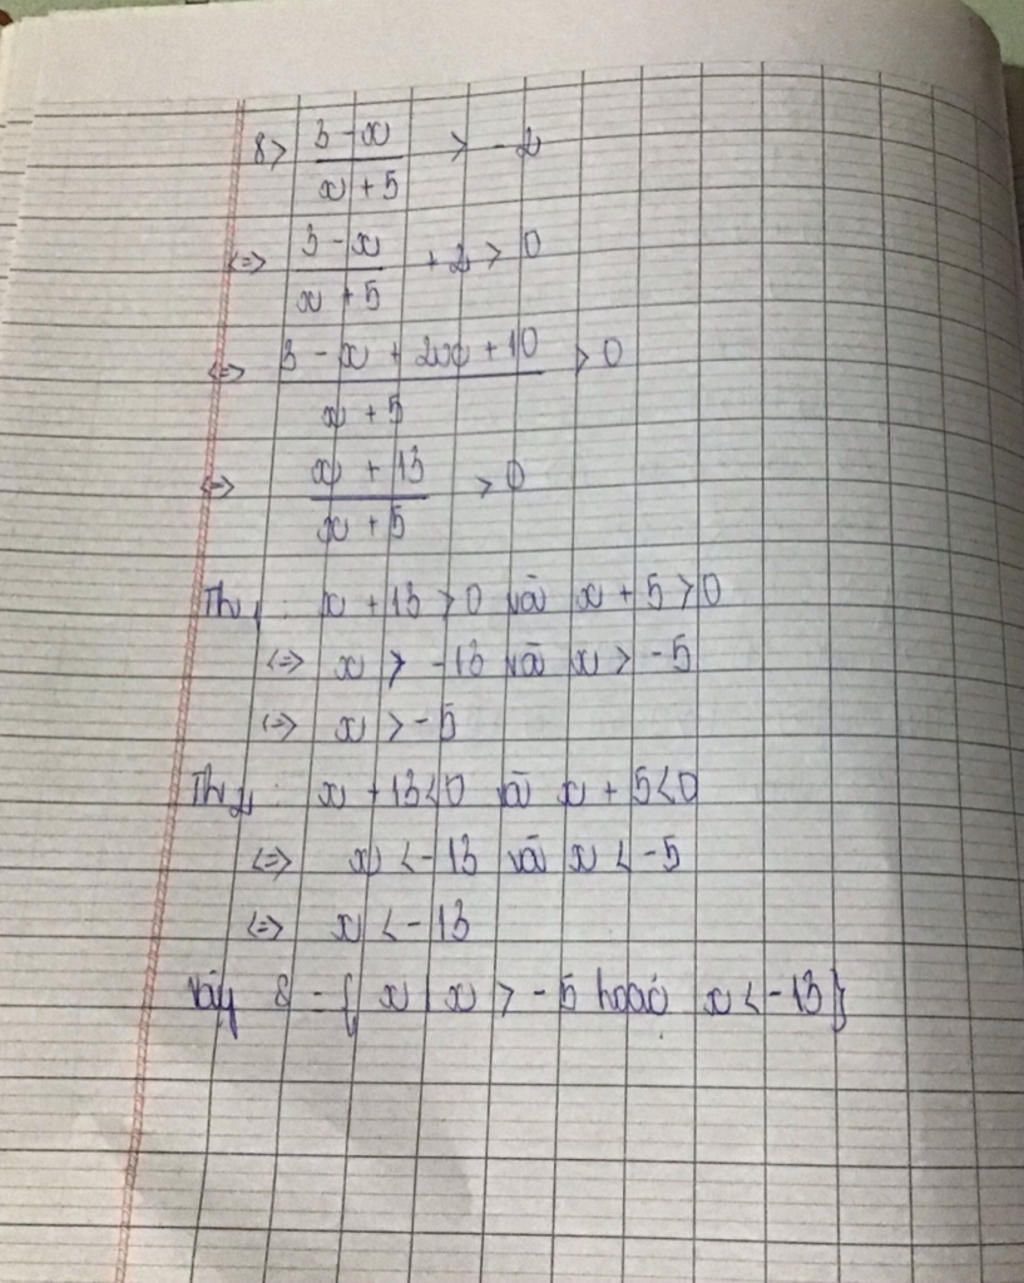 8> (3 - x)/(x + 5) > - 2
<=> (3 - x)/(x + 5) + 2 > 0
<=> (3 - x + 2x + 10)/(x + 5) > 0
<=> (x + 13)/(x + 5) > 0
Th1 : x + 13 > 0 và x + 5 > 0
<=> x > -13 và x > -5
<=> x > -5
Th2 : x + 13 < 0 và x + 5 < 0
<=> x < -13 và x < -5
<=> x < -13
Vậy S = { x | x > -5 hoặc x < -13 }